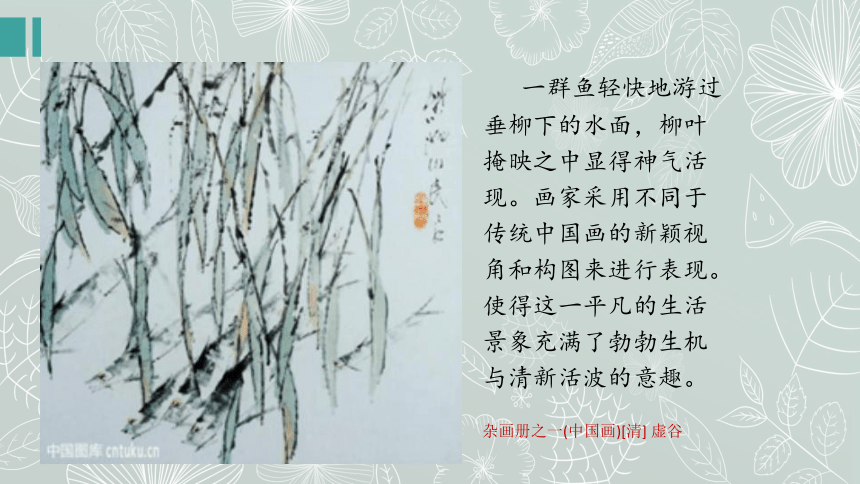 一群鱼轻快地游过
垂柳下的水面，柳叶
掩映之中显得神气活
现。画家采用不同于
传统中国画的新颖视
角和构图来进行表现。
使得这一平凡的生活
景象充满了勃勃生机
与清新活波的意趣。
杂画册之一(中国画)[清] 虚谷
中国图库 cntuku.cn